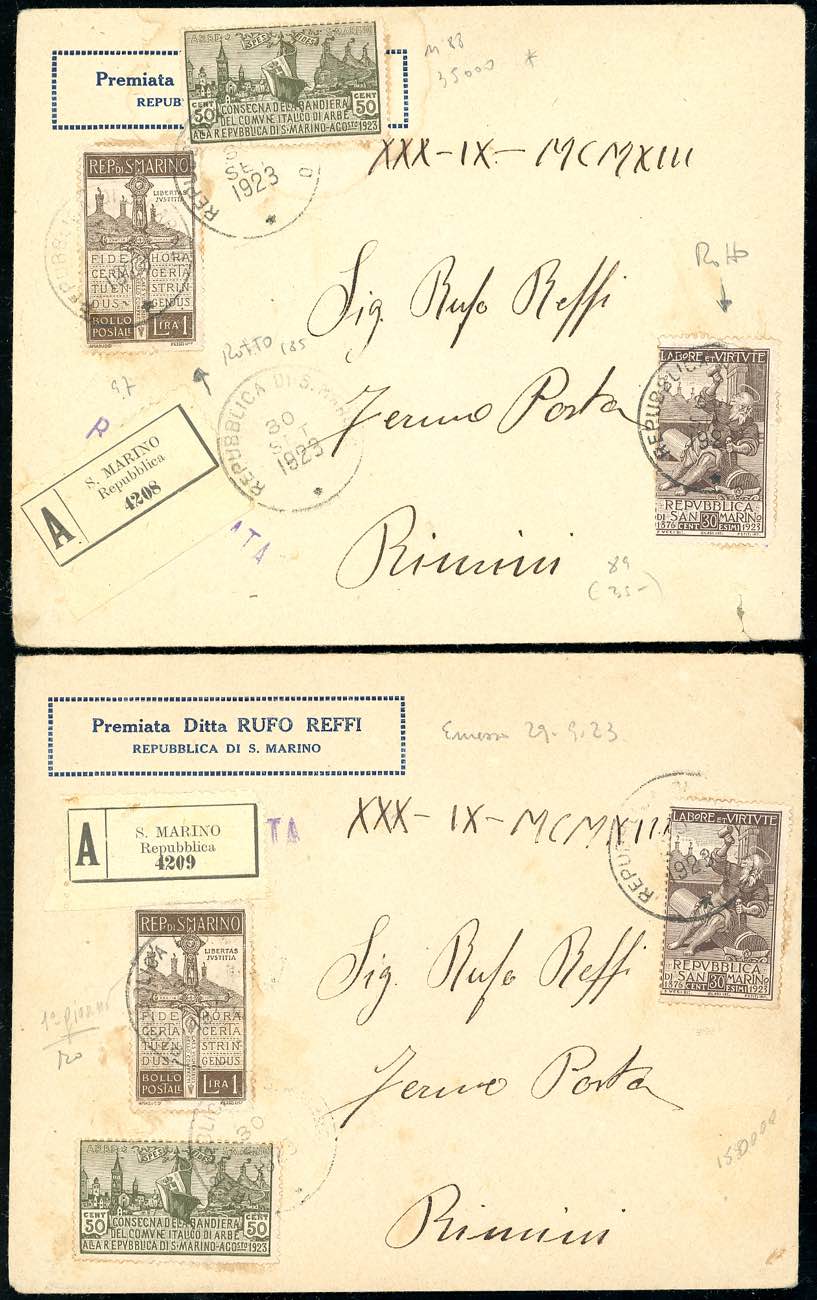 Premiata
REPUB
ARBE
SPES FIDES
CENT 50
CENT 50
CONSEGNA DELA BANDIERA
DEL COMVNE ITALCO DI ARBE
ALA REPVBBLICA DI S·MARINO·AGOSTO 1923
Nº 88
35000 *
XXX-IX-MCMXIII
REP. DI S. MARINO
LIBERTAS
JVSTITIA
FIDE HORA
CERTA CERTA
TUEN STRIN
DUS GENDUS
BOLLO
POSTALE
LIRA 1
SE
1923
Sig. Rufo Reffi
Rotto
Rotto 185
97
REPUBBLICA DI S. MAR
30
SET
1923
Fermo Posta
LABORE ET VIRTVTE
REPVBBLICA
DI SAN MARINO
1876 CENT 30 ESIMI 1923
R
A
S. MARINO
Repubblica
4208
ATA
Rimini
89
(35-)
Premiata Ditta RUFO REFFI
REPUBBLICA DI S. MARINO
Emesso 29-9-23
XXX-IX-MCMXIII
A
S. MARINO
Repubblica
4209
TA
LABORE ET VIRTVTE
REPVBBLICA
DI SAN MARINO
1876 CENT 30 ESIMI 1923
1923
REP. DI S. MARINO
LIBERTAS
JVSTITIA
FIDE HORA
CERTA CERTA
TUEN STRIN
DUS GENDUS
BOLLO
POSTALE
LIRA 1
Sig. Rufo Reffi
1º giorno
Fermo Posta
30
150000
ARBE
SPES FIDES
CENT 50
CENT 50
CONSEGNA DELA BANDIERA
DEL COMVNE ITALCO DI ARBE
ALA REPVBBLICA DI S·MARINO·AGOSTO 1923
Rimini